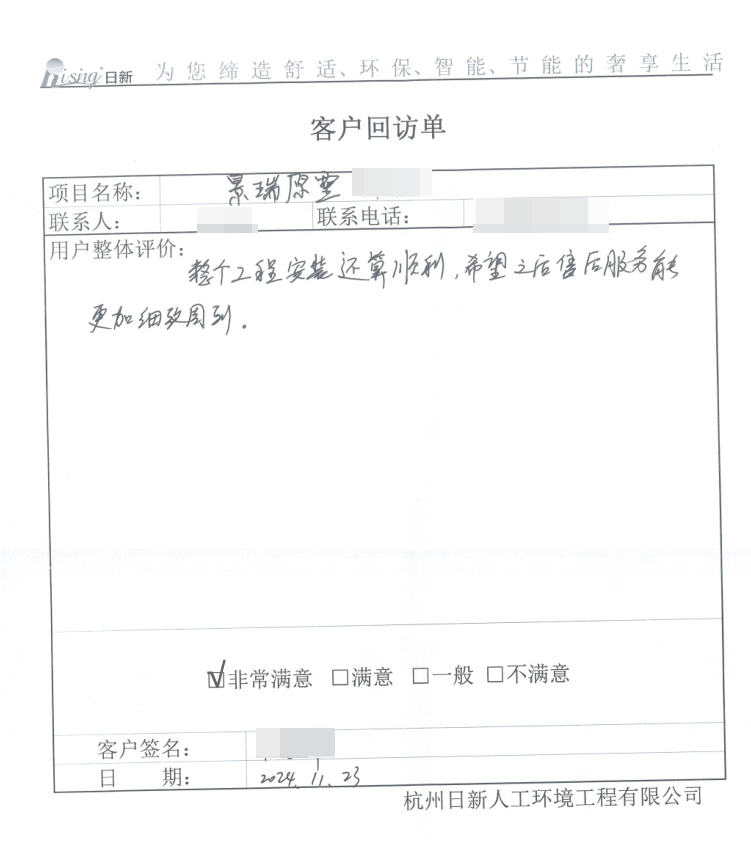 Rising 日新 为您缔造舒适、环保、智能、节能的奢享生活
客户回访单
项目名称: 景瑞原墅
联系人: 联系电话:
用户整体评价:
整个工程安装还算顺利,希望之后售后服务能
更加细致周到.
☑非常满意 □满意 □一般 □不满意
客户签名:
日 期: 2024.11.23
杭州日新人工环境工程有限公司